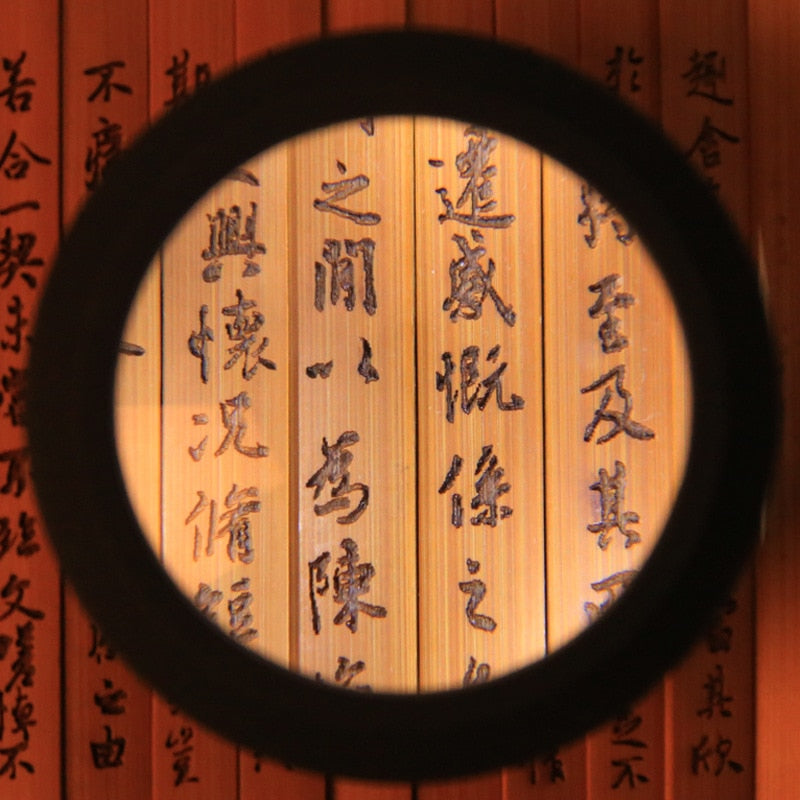 趣舍其欣
於將至及其不
遷感慨係之
之間以為陳
興懷况脩短
期豈
不痛之由
若合一契未嘗不臨文嗟悼不